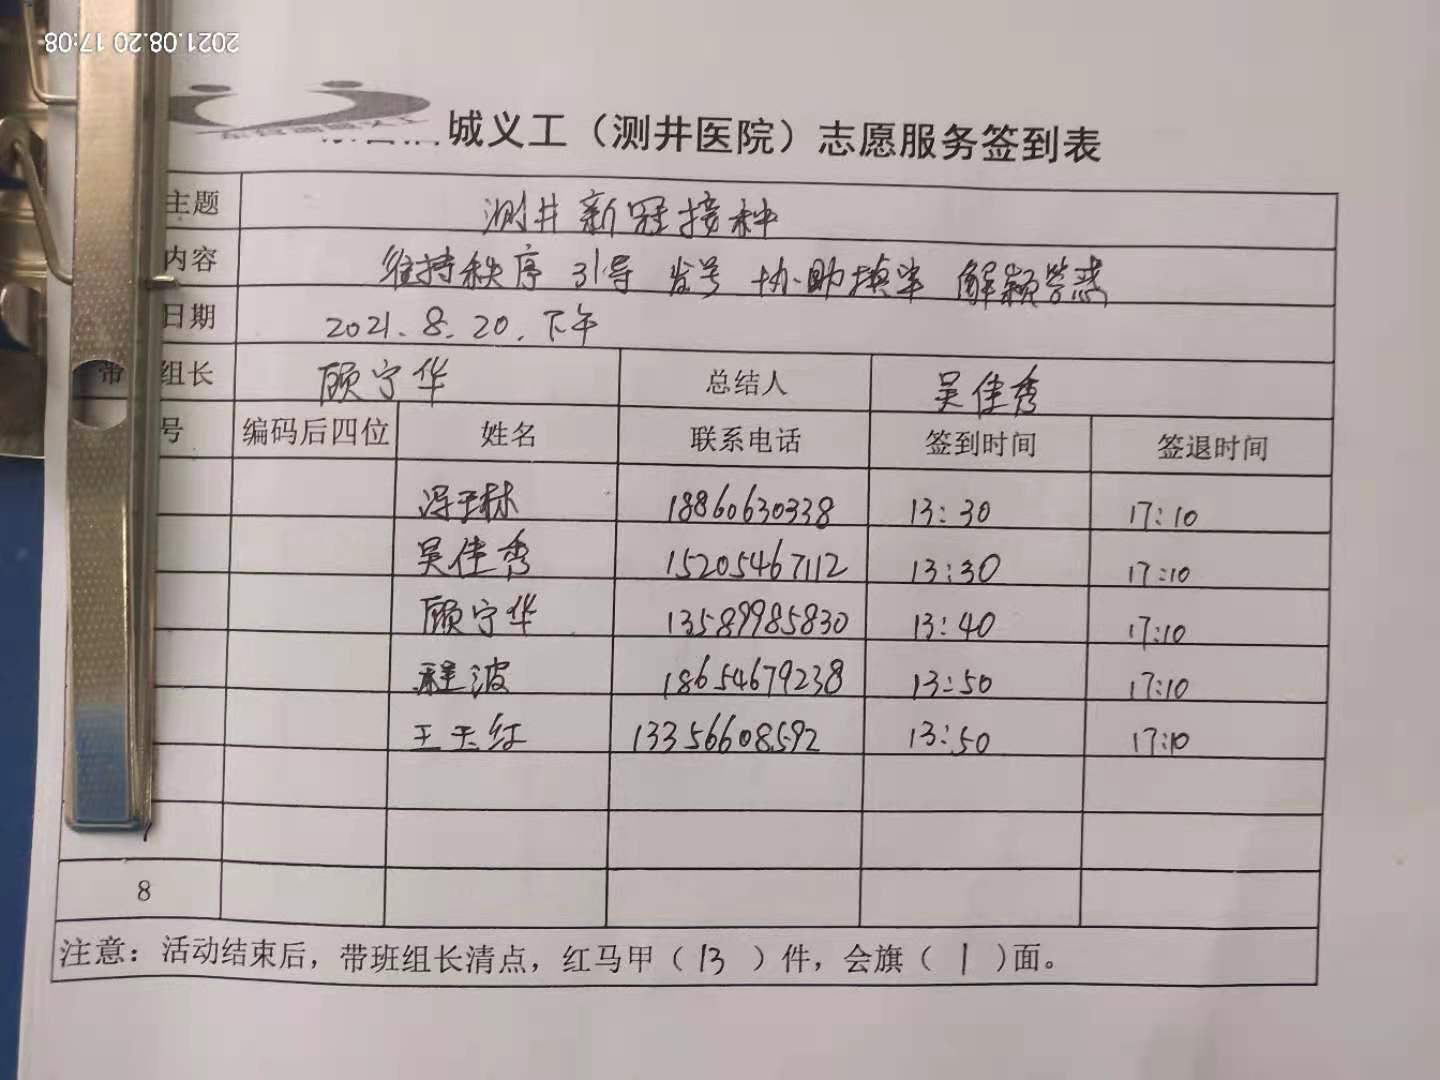 2021.08.20 17:08
城义工（测井医院）志愿服务签到表
主题 测井新冠接种
内容 维持秩序 引导 发号 协助填单 解颖答惑
日期 2021.8.20.下午
带 组长 顾宁华 总结人 吴佳秀
号 编码后四位 姓名 联系电话 签到时间 签退时间
冯玉林 18860630338 13:30 17:10
吴佳秀 15205467112 13:30 17:10
顾宁华 13589985830 13:40 17:10
程波 18654679238 13:50 17:10
王玉红 13356608592 13:50 17:10
8
注意：活动结束后，带班组长清点，红马甲（ 13 ）件，会旗（ 1 ）面。